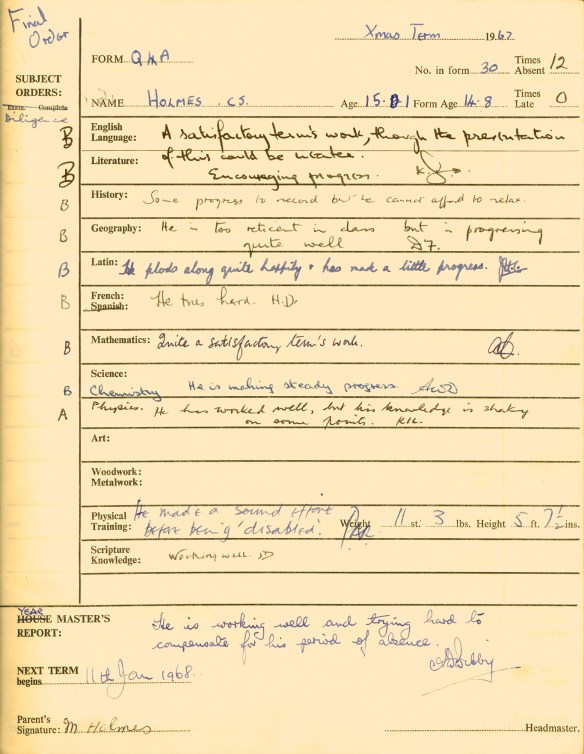 Final
Order
Xmas Term 1967
FORM Q4A
No. in form 30 Times Absent 12
SUBJECT ORDERS:
Exam. Complete
Diligence
NAME HOLMES . C.S. Age 15.1 Form Age 14.8 Times Late 0
B English Language: A satisfactory term's work, though the presentation
of this could be neater.
B Literature: Encouraging progress.
B History: Some progress to record but he cannot afford to relax.
B Geography: He is too reticent in class but is progressing
quite well D.F.
B Latin: He plods along quite happily + has made a little progress.
B French: Spanish: He tries hard. H.D.
B Mathematics: Quite a satisfactory term's work.
Science:
B Chemistry He is making steady progress
A Physics. He has worked well, but his knowledge is shaky
on some points. K.H.
Art:
Woodwork:
Metalwork:
Physical Training: He made a sound effort
before being 'disabled'. Weight 11 st. 3 lbs. Height 5 ft. 7½ ins.
Scripture Knowledge: Working well.
YEAR
HOUSE MASTER'S REPORT: He is working well and trying hard to
compensate for his period of absence.
NEXT TERM begins 11th Jan 1968.
Parent's Signature: M Holmes
Headmaster.